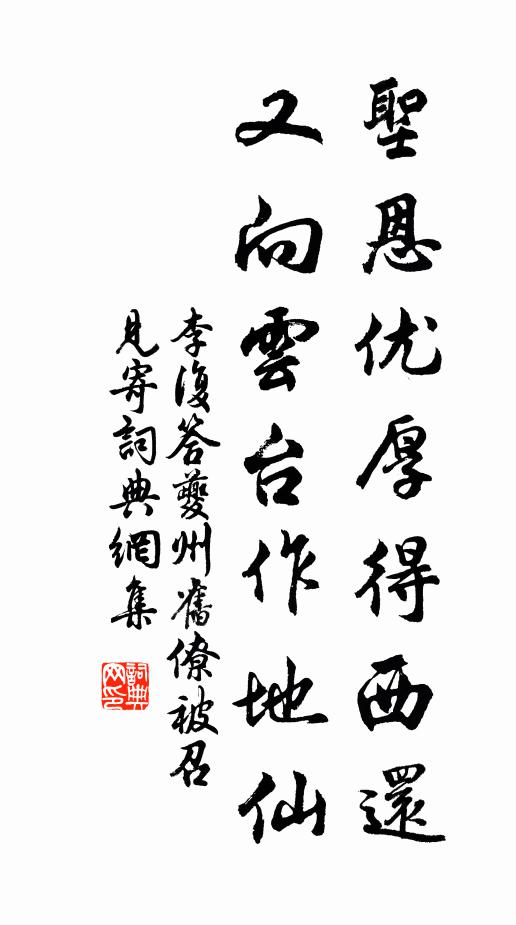 聖恩优厚得西還
又向雲台作地仙
李復答夔州舊僚被召
見寄詞典網集
詞典网印